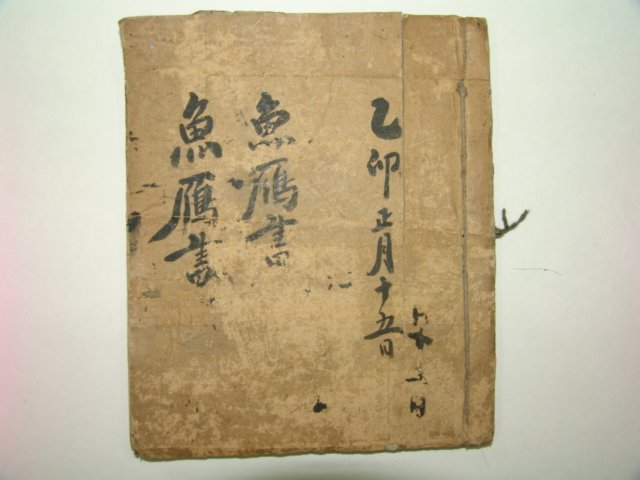 乙卯正月十五日
魚鴈書
魚鴈書